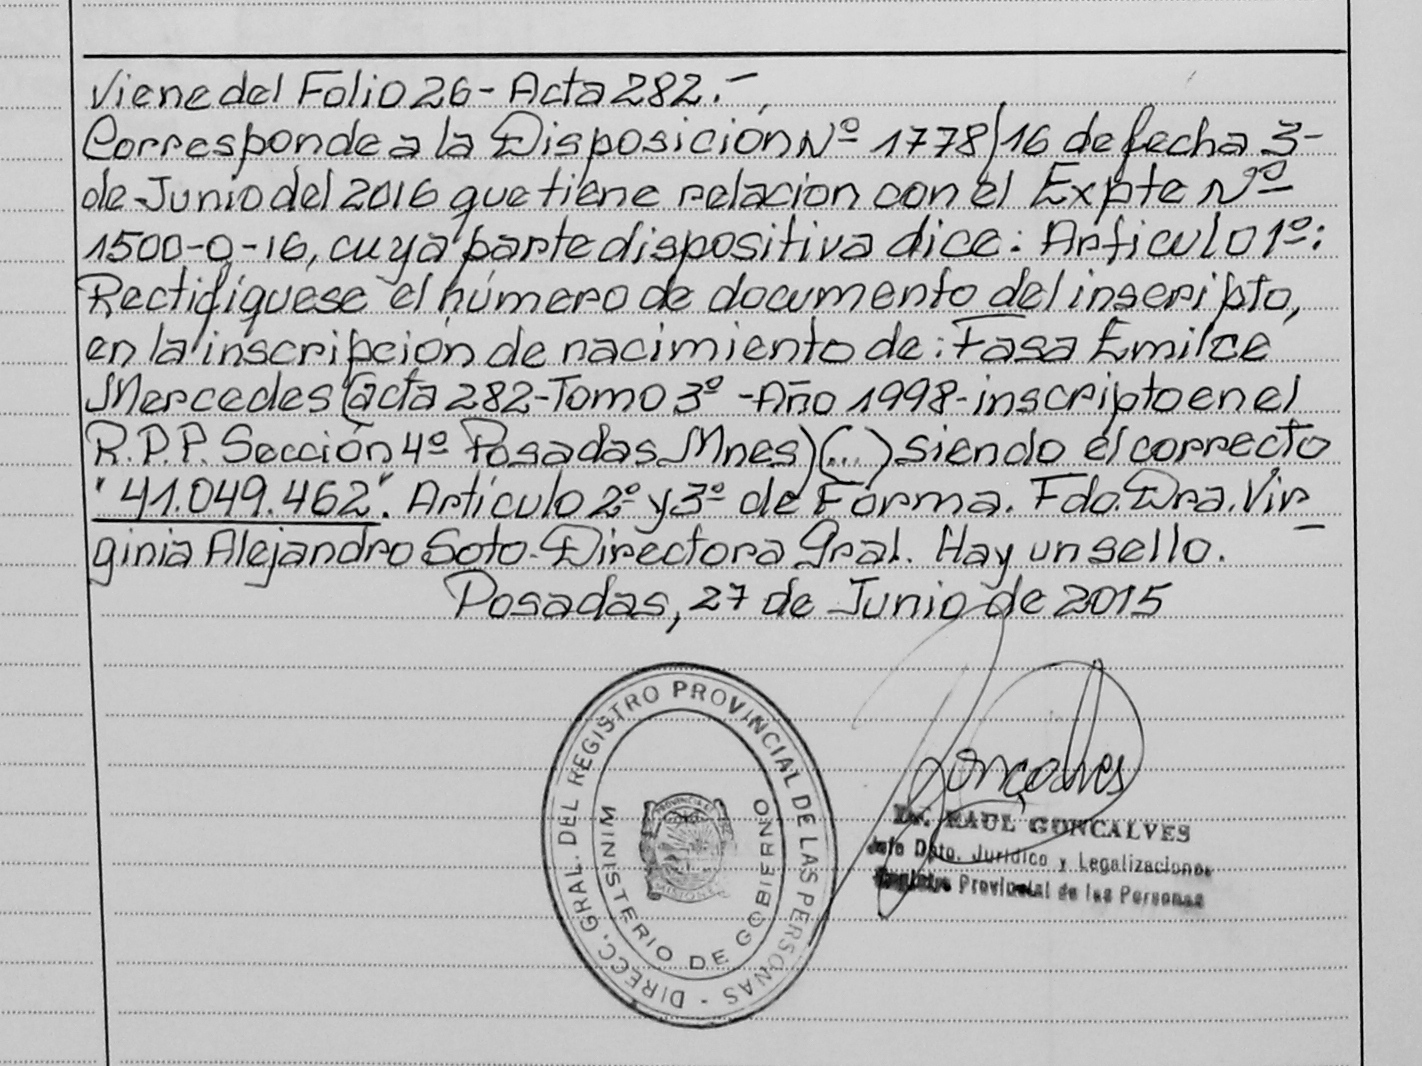 Viene del Folio 26 - Acta 282.-
Corresponde a la Disposición Nº 1778/16 de fecha 3-
de Junio del 2016 que tiene relacion con el Expte Nº
1500-0-16, cuya parte dispositiva dice: Artículo 1º:
Rectifíquese el número de documento del inscripto,
en la inscripción de nacimiento de: Fasa Emilce
Mercedes (acta 282-Tomo 3º -Año 1998-inscripto en el
R.P.P. Sección 4º Posadas Mnes) (...) siendo el correcto
"41.049.462". Artículo 2º y 3º de Forma. Fdo. Dra. Vir_
ginia Alejandro Soto-Directora Gral. Hay un sello.
Posadas, 27 de Junio de 2015
DIRECC. GRAL. DEL REGISTRO PROVINCIAL DE LAS PERSONAS -
MINISTERIO DE GOBIERNO
PROVINCIA DE
MISIONES
Goncalves
Dr. RAUL GONCALVES
Jefe Dpto. Jurídico y Legalizaciones
Registro Provincial de las Personas